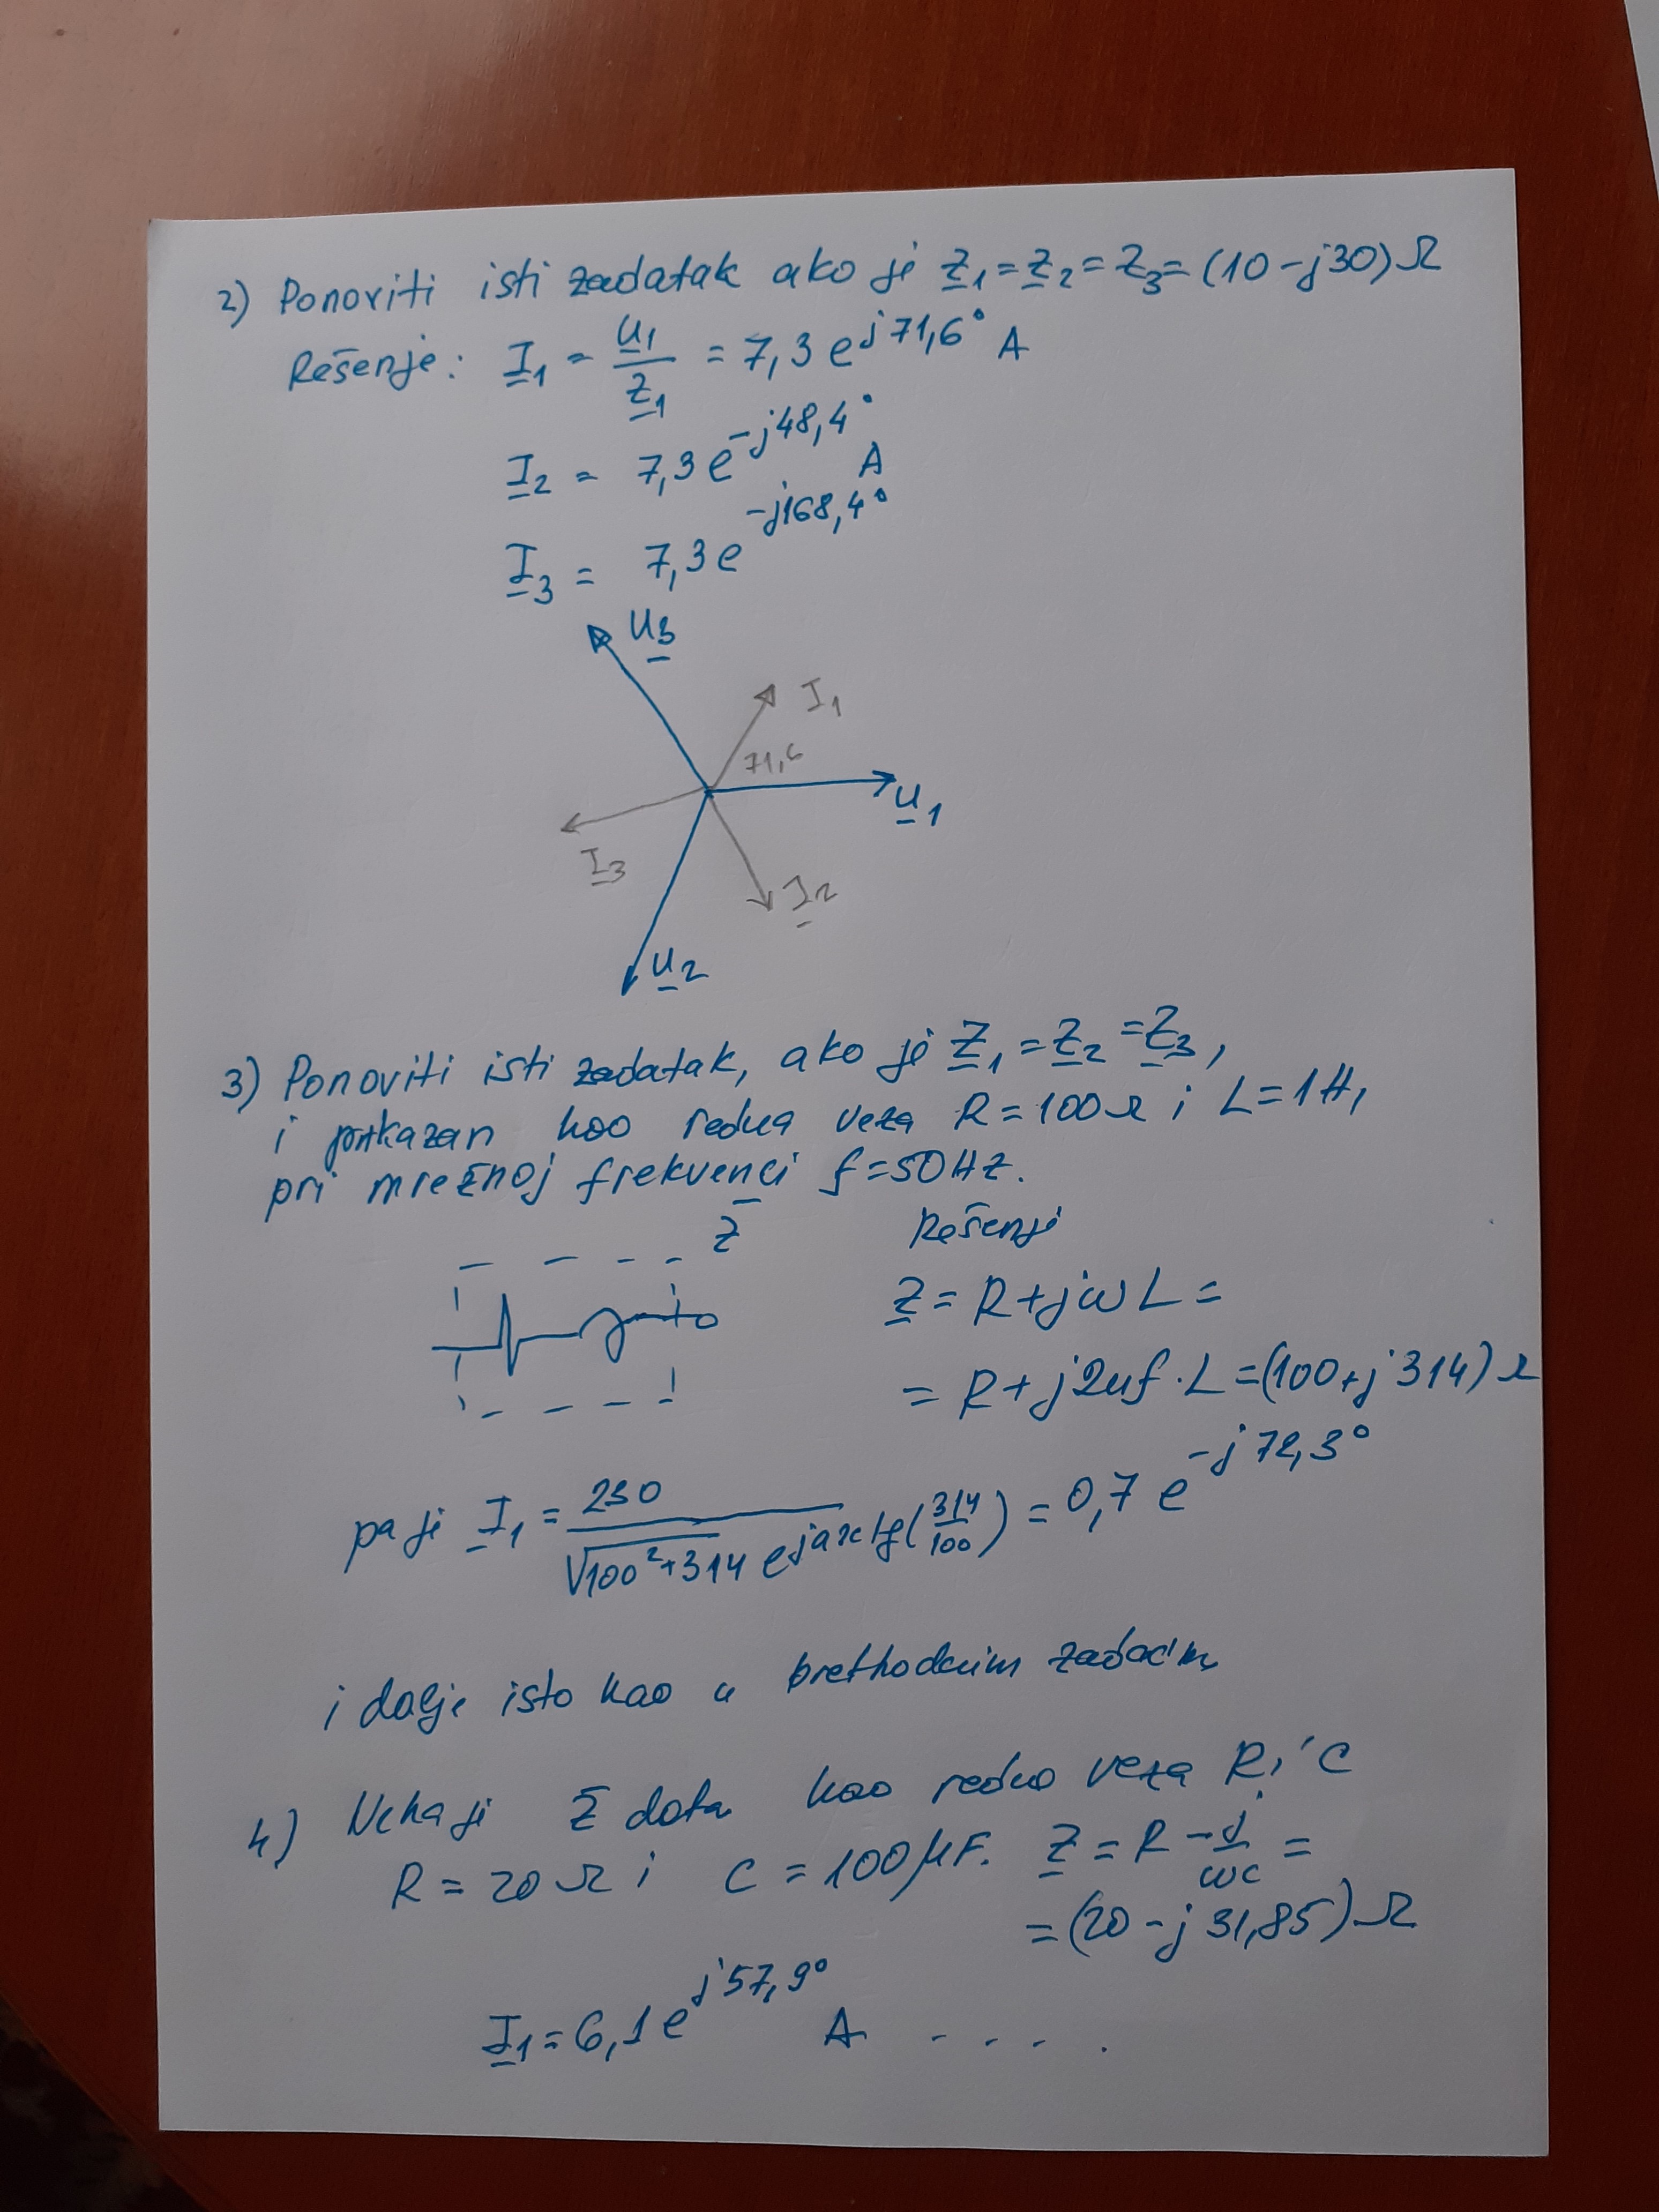 2) Ponoviti isti zadatak ako je Z1 = Z2 = Z3 = (10 - j30) Ω
Rešenje: I1 = U1/Z1 = 7,3 e^j71,6° A
I2 = 7,3 e^-j48,4° A
I3 = 7,3 e^-j168,4°
U3
I1
71,6
U1
I3
I2
U2
3) Ponoviti isti zadatak, ako je Z1 = Z2 = Z3,
i prikazan kao redna veza R = 100 Ω i L = 1H,
pri mrežnoj frekvenci f = 50Hz.
Z
Rešenje
Z = R + jωL =
= R + j2πf · L = (100 + j314) Ω
pa je I1 = 230/(√(100² + 314) e^j arctg(314/100)) = 0,7 e^-j72,3°
i dalje isto kao u prethodnim zadacim
4) Neka je Z data kao redna veza R i C
R = 20 Ω i C = 100 μF. Z = R - j/ωC =
= (20 - j31,85) Ω
I1 = 6,1 e^j57,9° A - - - .